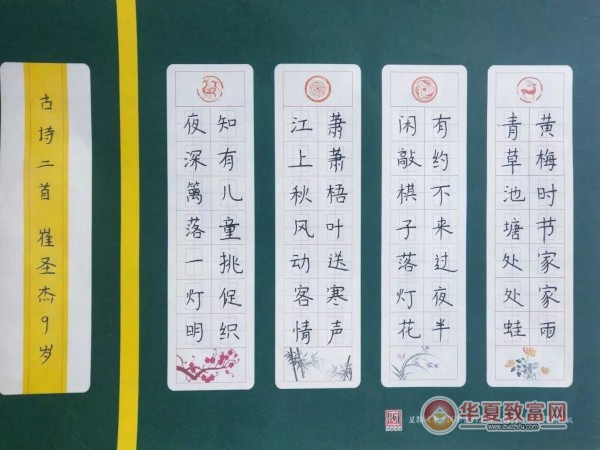 黄梅时节家家雨
青草池塘处处蛙
有约不来过夜半
闲敲棋子落灯花
萧萧梧叶送寒声
江上秋风动客情
知有儿童挑促织
夜深篱落一灯明
古诗二首 崔圣杰9岁
华夏致富网